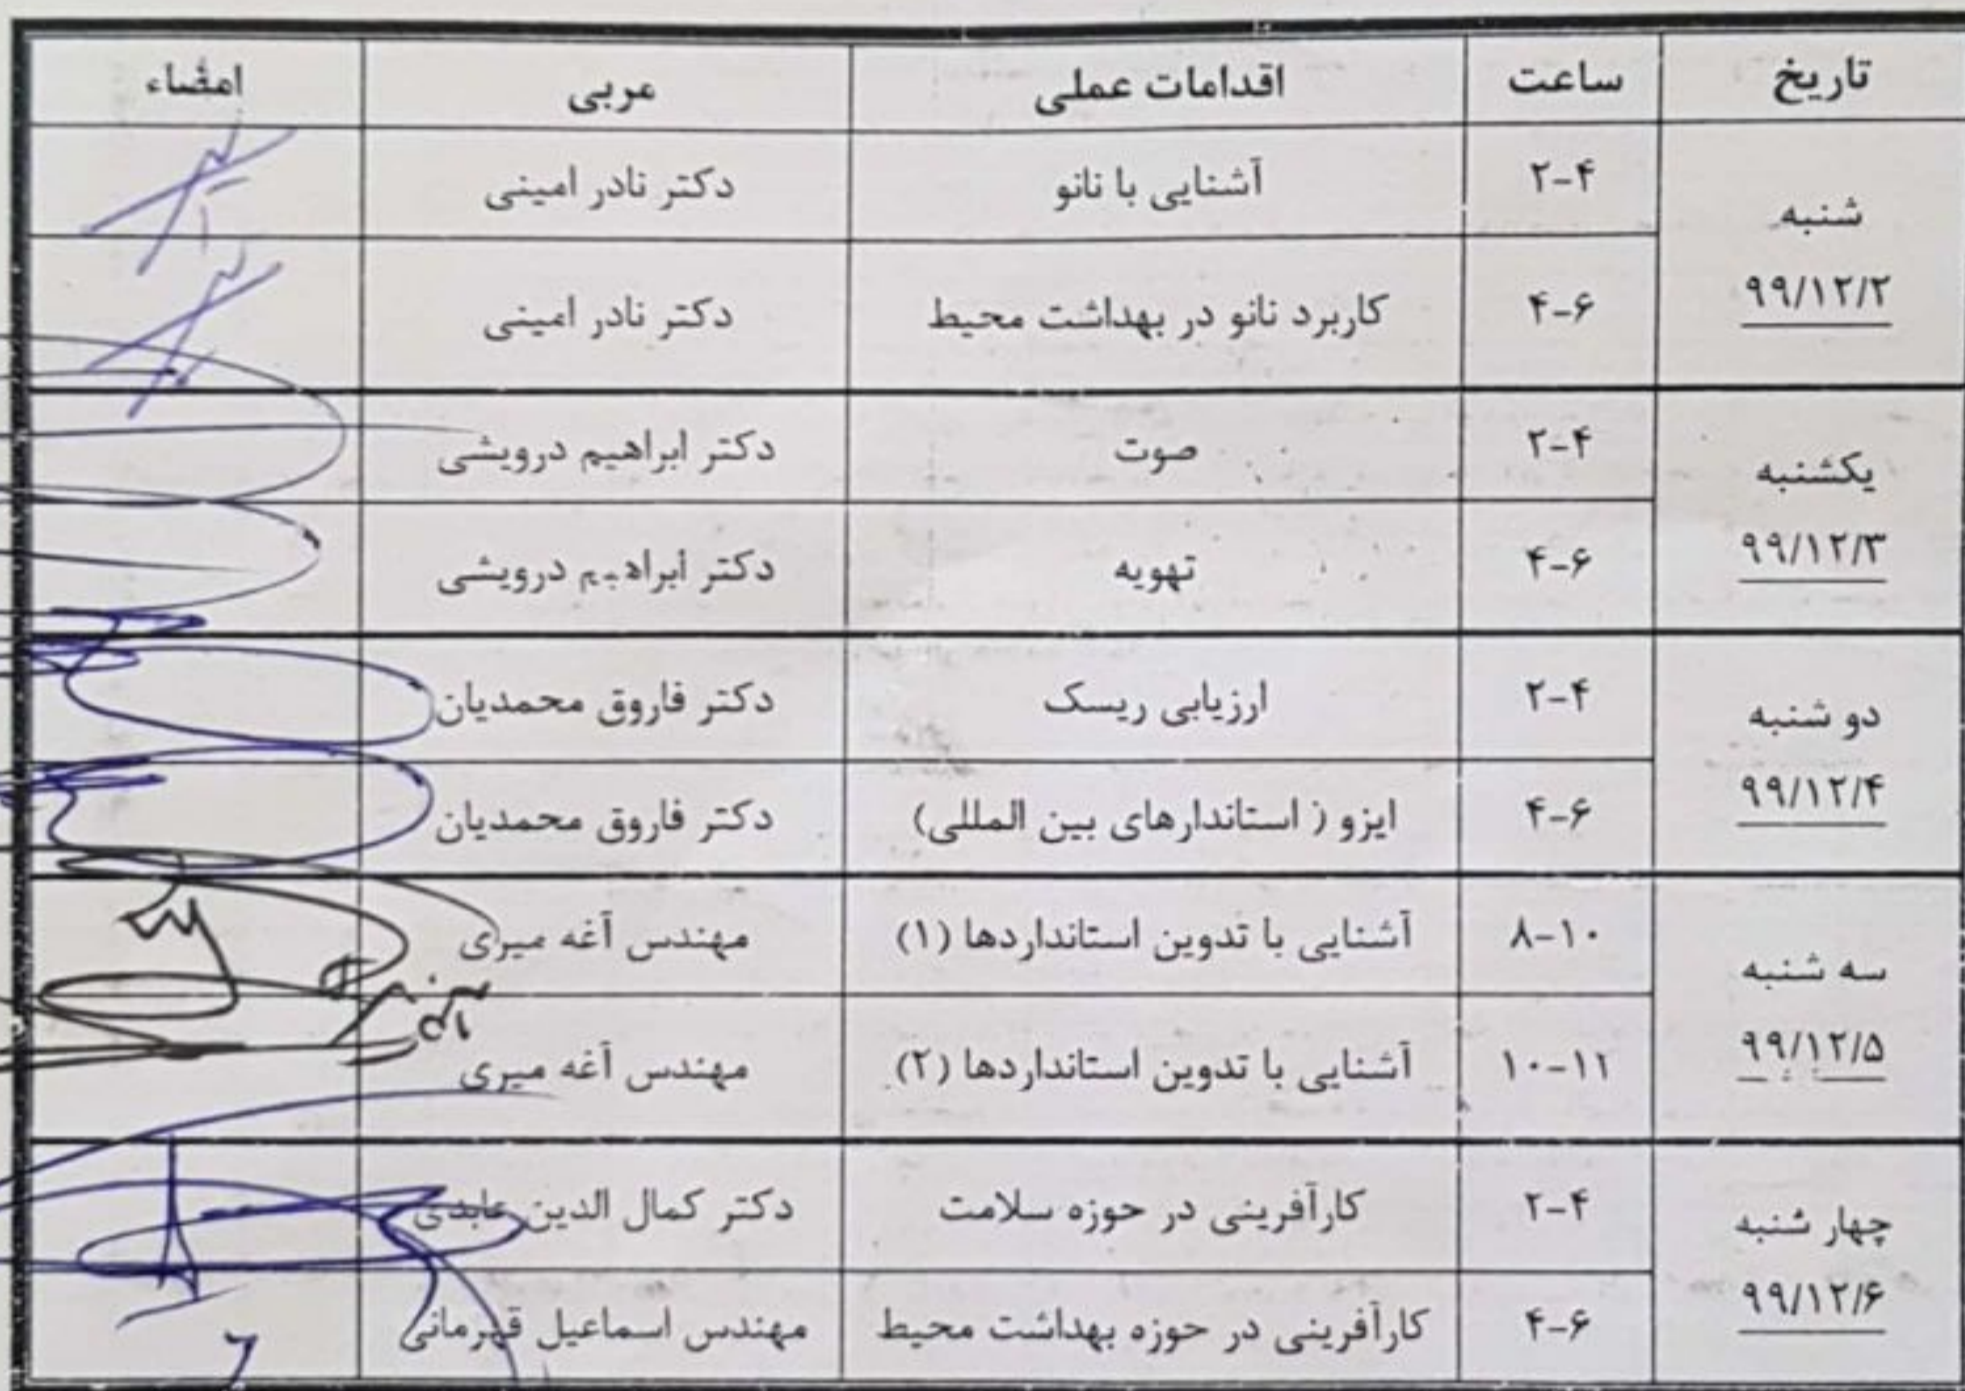 تاریخ ساعت اقدامات عملی مربی امضاء
شنبه ۹۹/۱۲/۲
۲-۴ آشنایی با نانو دکتر نادر امینی
۴-۶ کاربرد نانو در بهداشت محیط دکتر نادر امینی
یکشنبه ۹۹/۱۲/۳
۲-۴ صوت دکتر ابراهیم درویشی
۴-۶ تهویه دکتر ابراهیم درویشی
دو شنبه ۹۹/۱۲/۴
۲-۴ ارزیابی ریسک دکتر فاروق محمدیان
۴-۶ ایزو ( استاندارهای بین المللی) دکتر فاروق محمدیان
سه شنبه ۹۹/۱۲/۵
۸-۱۰ آشنایی با تدوین استانداردها (۱) مهندس آغه میری
۱۰-۱۱ آشنایی با تدوین استانداردها (۲) مهندس آغه میری
چهار شنبه ۹۹/۱۲/۶
۲-۴ کارآفرینی در حوزه سلامت دکتر کمال الدین عابدی
۴-۶ کارآفرینی در حوزه بهداشت محیط مهندس اسماعیل قهرمانی